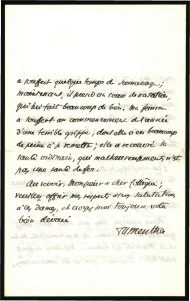 a souffert quelque temps de surmenage ;
maintenant, il prend un cours de natation,
qui lui fait beaucoup de bien. Ma femme
a souffert au commencement de l'année
d'une terrible grippe, dont elle a eu beaucoup
de peine à se remettre ; elle a recouvré sa
santé ordinaire, qui malheureusement n'est
pas une santé de fer.
Au revoir, Monsieur et cher Collègue ;
veuillez offrir mes respectueuses salutations
à ces dames, et croyez moi toujours votre
bien dévoué